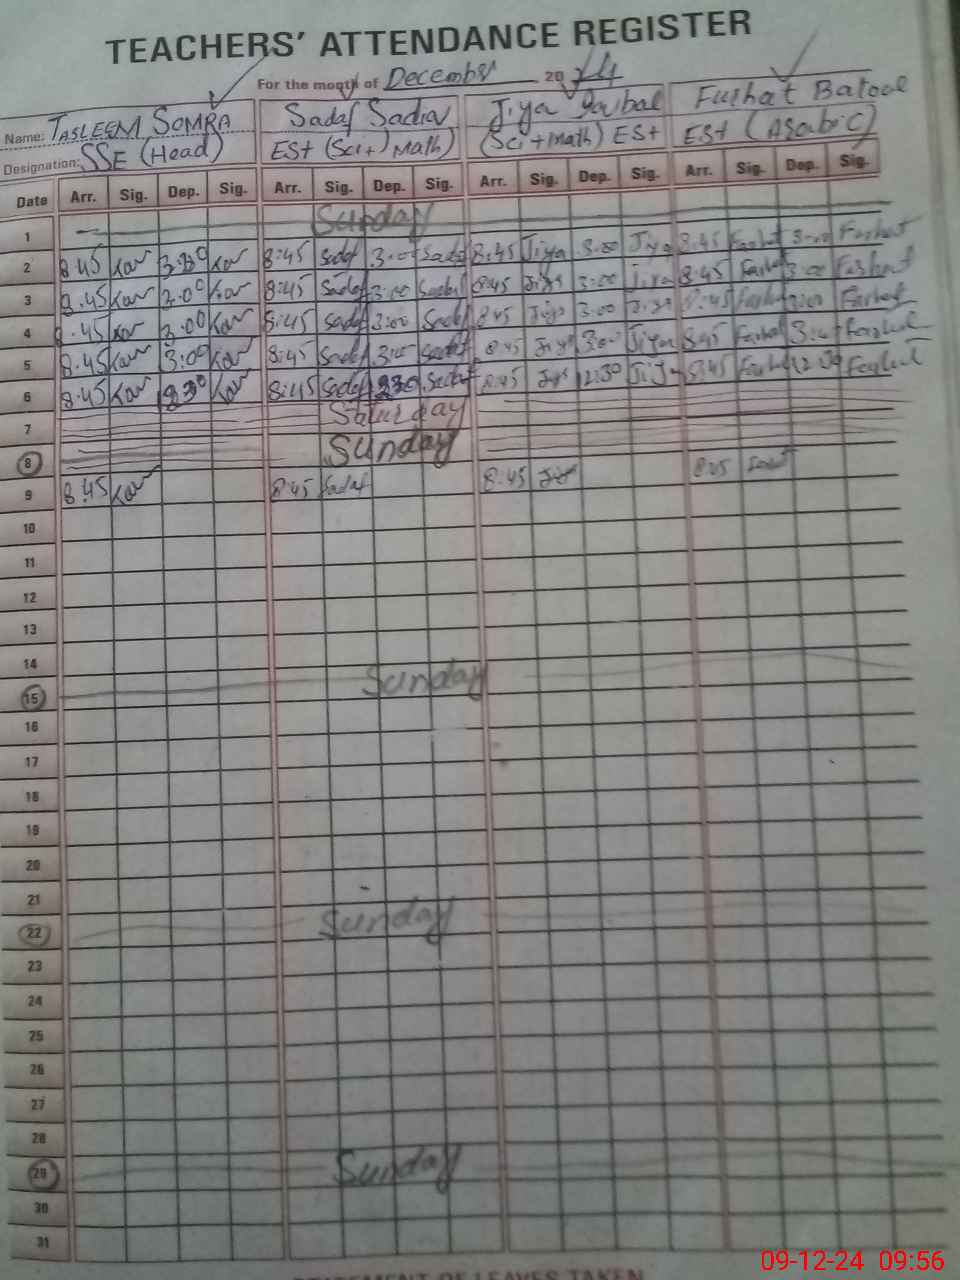 TEACHERS' ATTENDANCE REGISTER
For the month of December 2024
Name: TASLEEM SOMRA Sadaf Sadia Jiya Iqbal Farhat Batool
Designation: SSE (Head) EST (Sci+Math) (Sci+math) EST EST (Arabic)
Date Arr. Sig. Dep. Sig. Arr. Sig. Dep. Sig. Arr. Sig. Dep. Sig. Arr. Sig. Dep. Sig.
1 Sunday
2 8:45 3:00 8:45 Sadaf 3:00 Sadaf 8:45 Jiya 3:00 Jiya 8:45 Farhat 3:00 Farhat
3 8:45 3:00 8:45 Sadaf 3:00 Sadaf 8:45 Jiya 3:00 Jiya 8:45 Farhat 3:00 Farhat
4 8:45 3:00 8:45 Sadaf 3:00 Sadaf 8:45 Jiya 3:00 Jiya 8:45 Farhat 3:00 Farhat
5 8:45 3:00 8:45 Sadaf 3:00 Sadaf 8:45 Jiya 3:00 Jiya 8:45 Farhat 3:00 Farhat
6 8:45 8:45 Sadaf Sadaf 8:45 Jiya 12:30 Jiya 8:45 Farhat 12:30 Farhat
7 Saturday
8 Sunday
9 8:45 8:45 Sadaf 8:45 Jiya 8:45
10
11
12
13
14
15 Sunday
16
17
18
19
20
21
22 Sunday
23
24
25
26
27
28
29 Sunday
30
31
STATEMENT OF LEAVES TAKEN
09-12-24 09:56